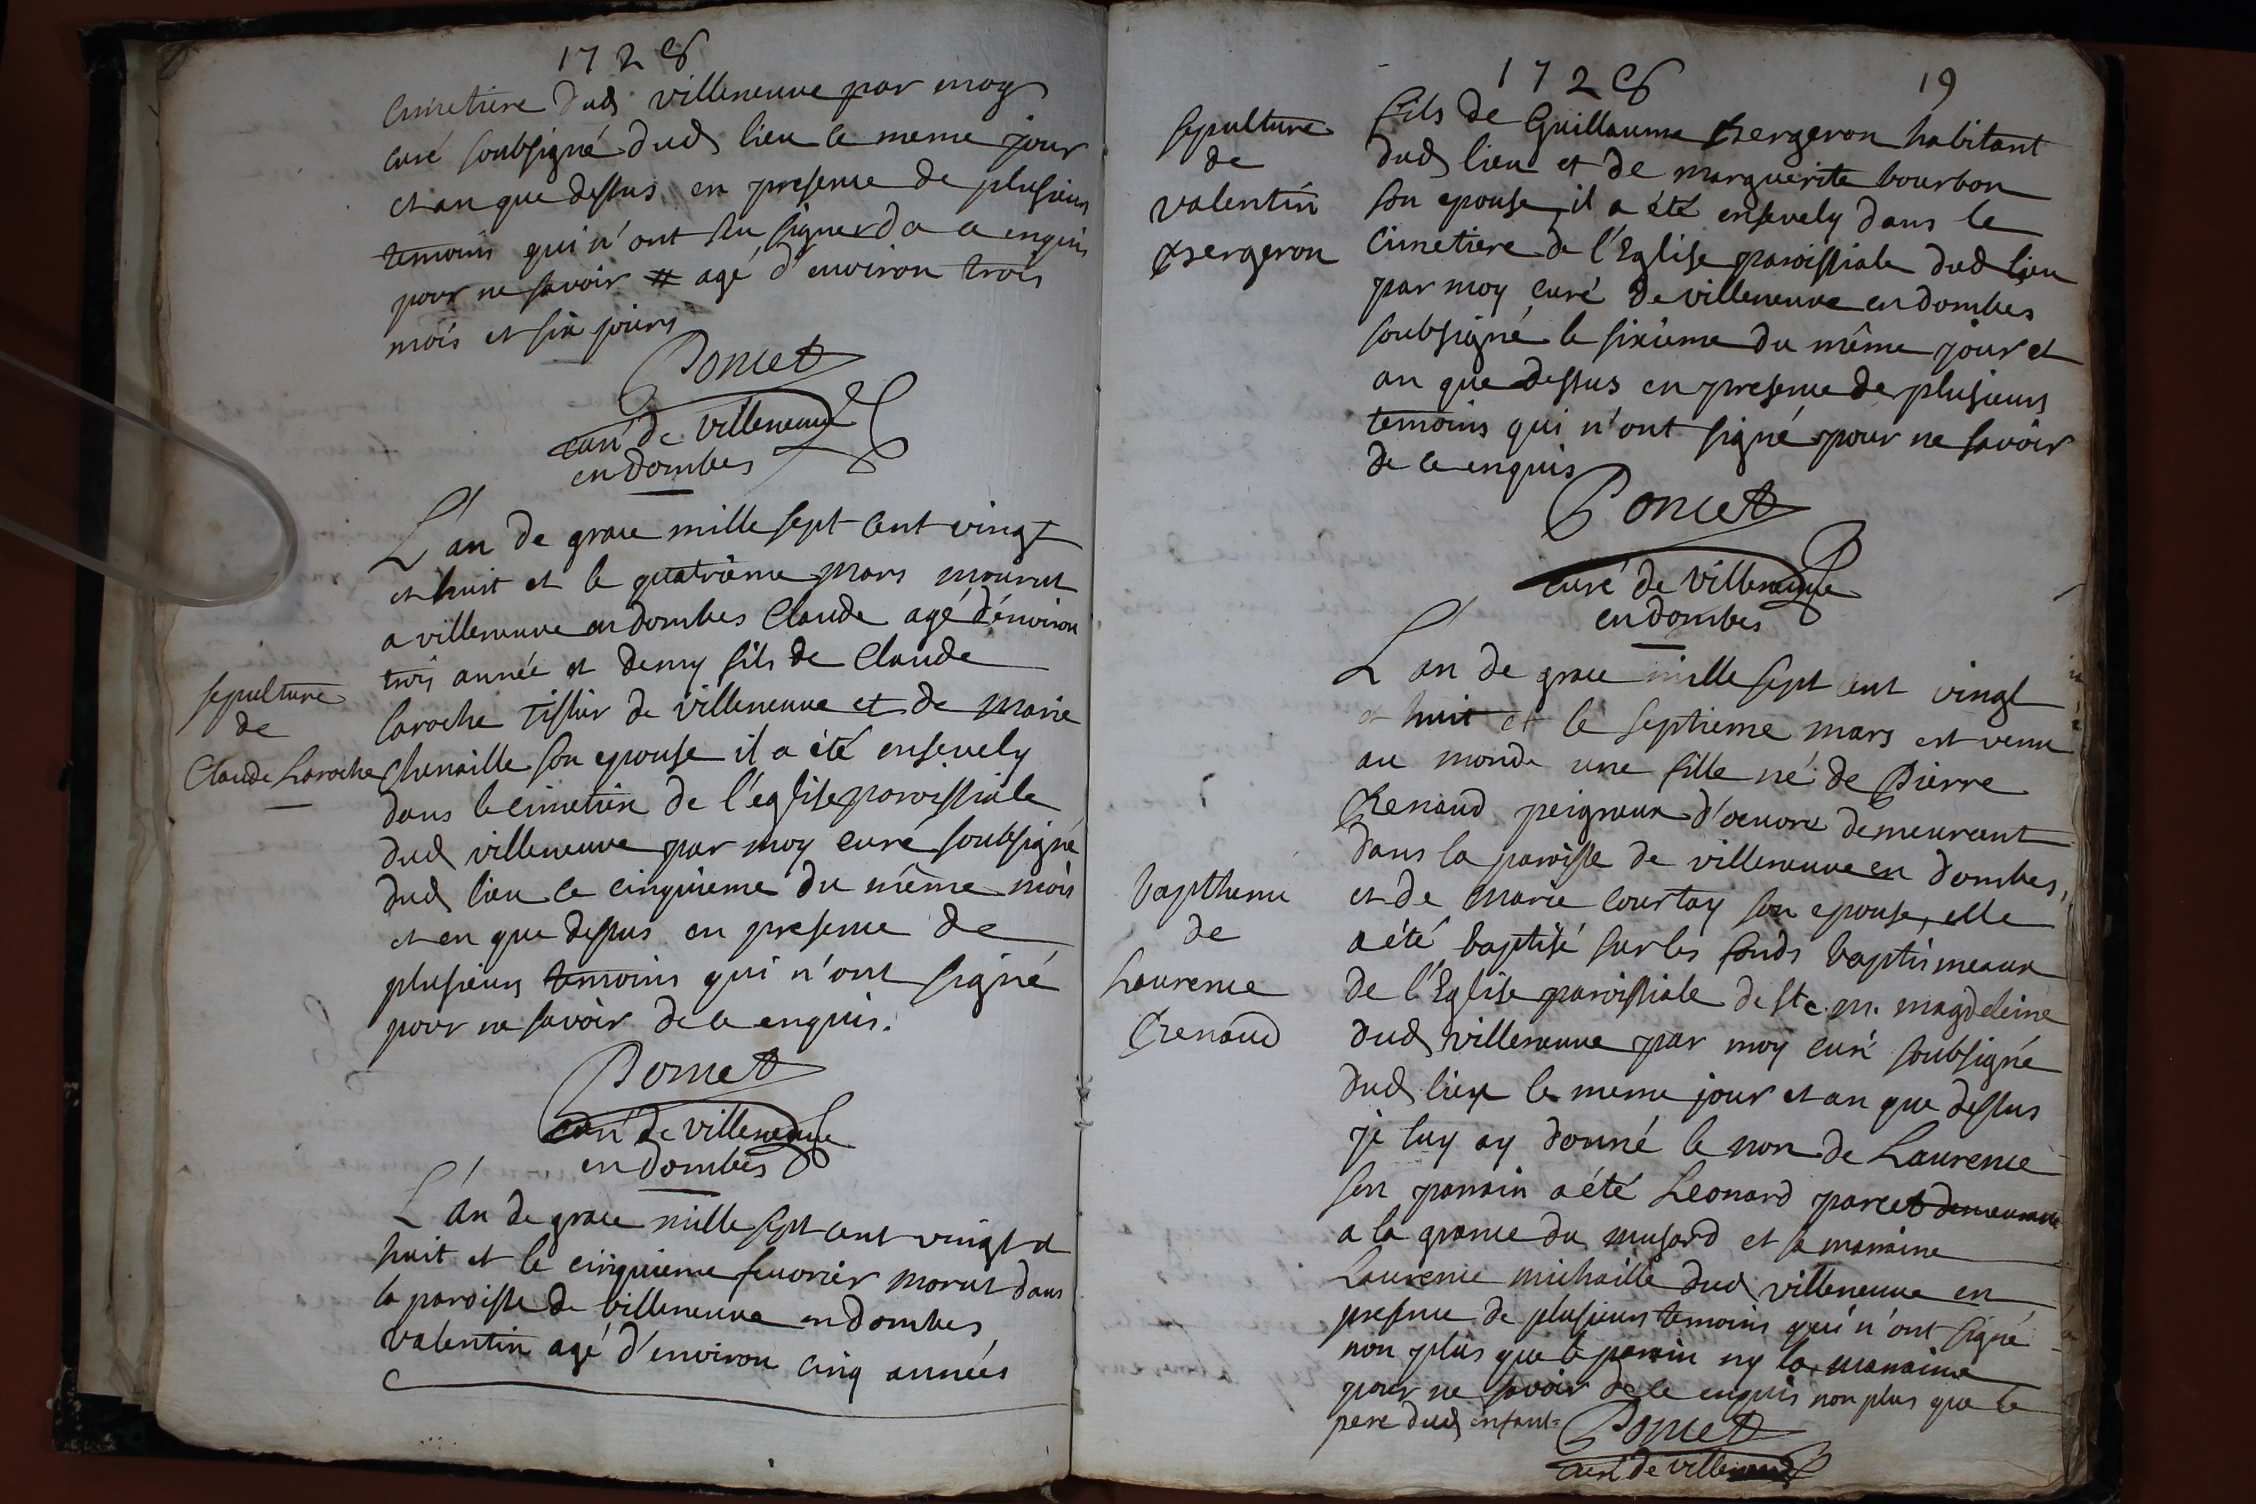 1728
cimetiere dud villeneuve par moy
curé soubsigné dud lieu ce meme jour
et an que dessus en presence de plusieurs
temoins qui n'ont su signer da ce enquis
pour ne savoir # agé d'environ trois
mois et six jours
Poncet
curé de villeneuve
en dombes
L'an de grace mille sept cent vingt
et huit et le quatrieme mars mourut
a villeneuve en dombes Claude agé d'environ
trois année et demy fils de Claude
laroche tissier de villeneuve et de marie
chenaille son epouse il a été ensevely
dans le cimetiere de l'eglise paroissiale
dud villeneuve par moy curé soubsigné
dud lieu ce cinquieme du même mois
et en que dessus en presence de
plusieurs temoins qui n'ont signé
pour ne savoir de ce enquis.
Poncet
curé de villeneuve
en dombes
sepulture
de
Claude Laroche
L'an de grace mille sept cent vingt et
huit et le cinquieme feuvrier morut dans
la paroisse de villeneuve en dombes
valentin agé d'environ cinq années
1728
19
sepulture
de
valentin
Bergeron
fils de Guillaume Bergeron habitant
dud lieu et de marguerite bourbon
son epouse, il a été ensevely dans le
cimetiere de l'Eglise paroissiale dud lieu
par moy curé de villeneuve en dombes
soubsigné le sixieme du même jour et
an que dessus en presence de plusieurs
temoins qui n'ont signé pour ne savoir
de ce enquis
Poncet
curé de villeneuve
en dombes
L'an de grace mille sept cent vingt
et huit et le septieme mars est venu
au monde une fille né de Pierre
Renaud peigneur d'oeuvre demeurant
dans la paroisse de villeneuve en dombes,
et de marie courtay son epouse, elle
a été baptisé sur les fonds baptismeaux
de l'Eglise paroissiale de ste. m. magdeleine
dud villeneuve par moy curé soubsigné
dud lieu le meme jour et an que dessus
je luy ay donné le non de Laurence
son parrain a été Leonard parcet demeurant
a la grance du musard et sa marraine
Laurence michaille dud villeneuve en
presence de plusieurs temoins qui n'ont signé
non plus que le parain ny la maraine
pour ne savoir de ce enquis non plus que le
pere dud enfant
Poncet
curé de villeneuve
baptheme
de
Laurence
Renaud